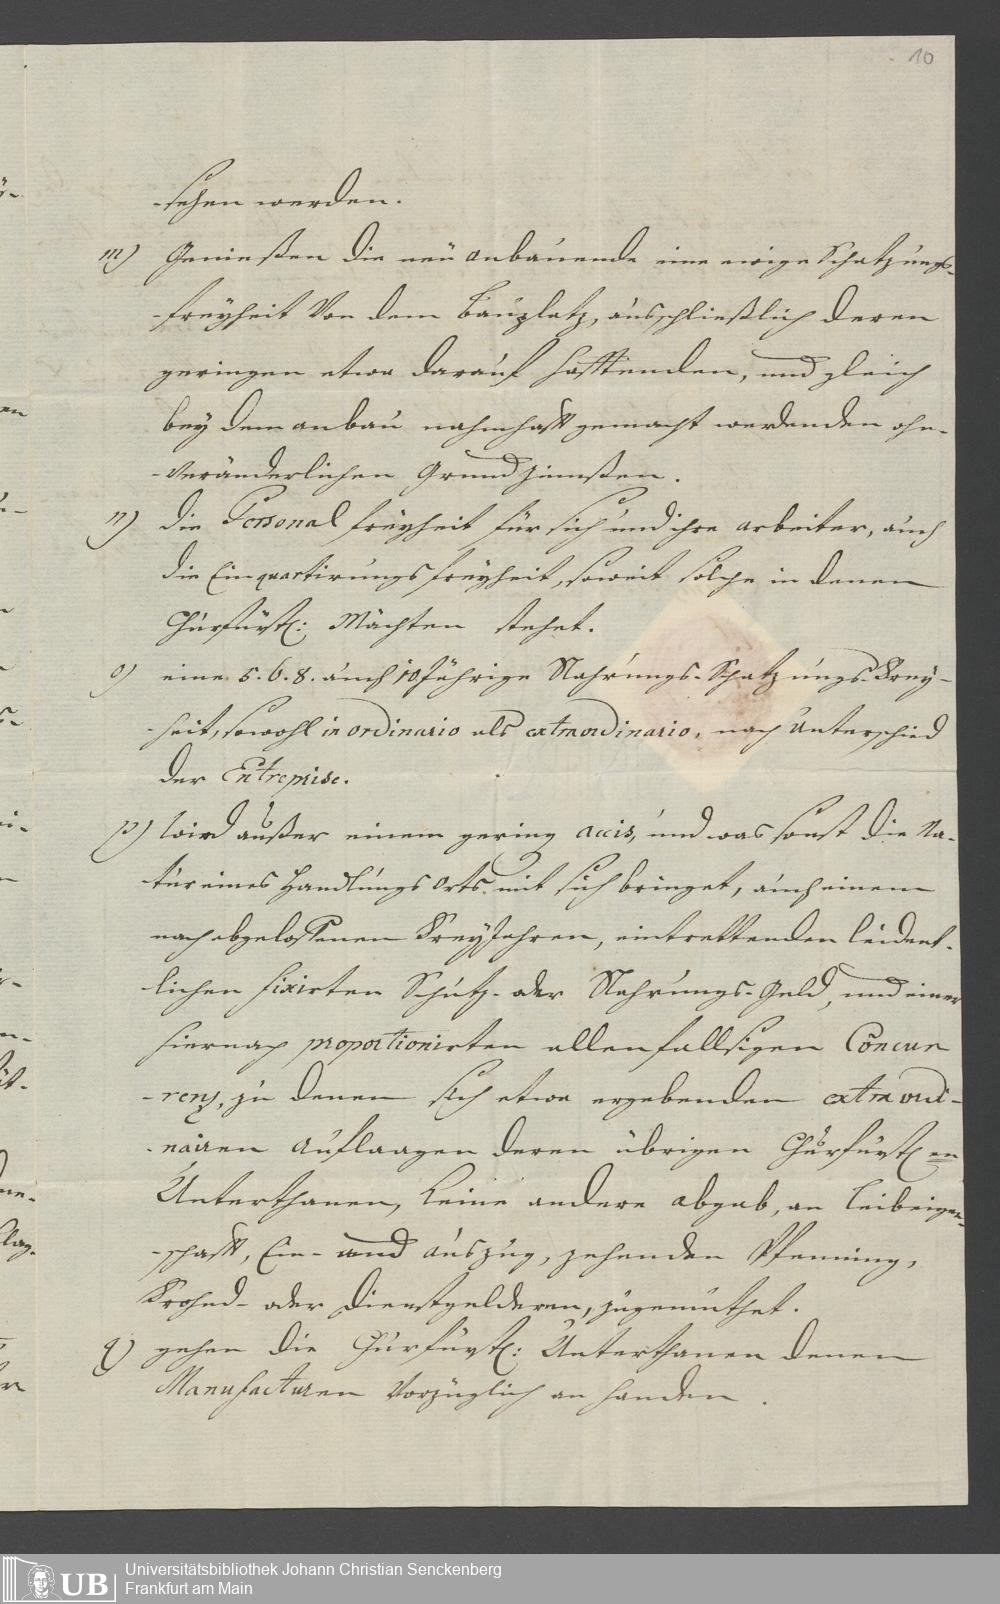 10
-sehen werden.
m) Genießen die neü anbauende eine ewige Schatzungs-
-freyheit Von dem Bauplatz, ausschließlich deren
geringen etwa darauf hafftenden, und gleich
bey dem anbau nahmhafft gemacht werdenden ohn-
-veränderlichen Grund zinnßen.
n) die Personal freyheit für sich und ihre arbeiter, auch
die Einquartirungs freyheit, soweit solche in denen
Churfürstl: Mächten stehet.
o) eine 5. 6. 8. auch 10 Jährige Nahrungs-Schatzungs-Frey-
-heit, sowohl in ordinario als extraordinario, nach Unterschied
der Entreprise.
p) Wird außer einem gering accis, und was sonst die Na-
-tur eines Handlungs orts mit sich bringet, auch einem
nach abgeloffenen Freyjahren, eintrettenden leident-
-lichen fixirten Schutz- oder Nahrungs-Geld, und einer
hiernach proportionirten allenfallsigen Concur
-renz, zu denen sich etwa ergebenden extraordi-
-nairen Auflaagen deren übrigen Churfürstlen
Unterthanen, keine andere abgab, an Leibeigen-
-schafft, Ein- und Auszug, zehenden Pfenning,
Frohnd- oder Dienstgelderen, zugemuthet.
q) gehen die Churfürstl: Unterthanen denen
Manufacturen Vorzüglich an handen.
UB
Universitätsbibliothek Johann Christian Senckenberg
Frankfurt am Main